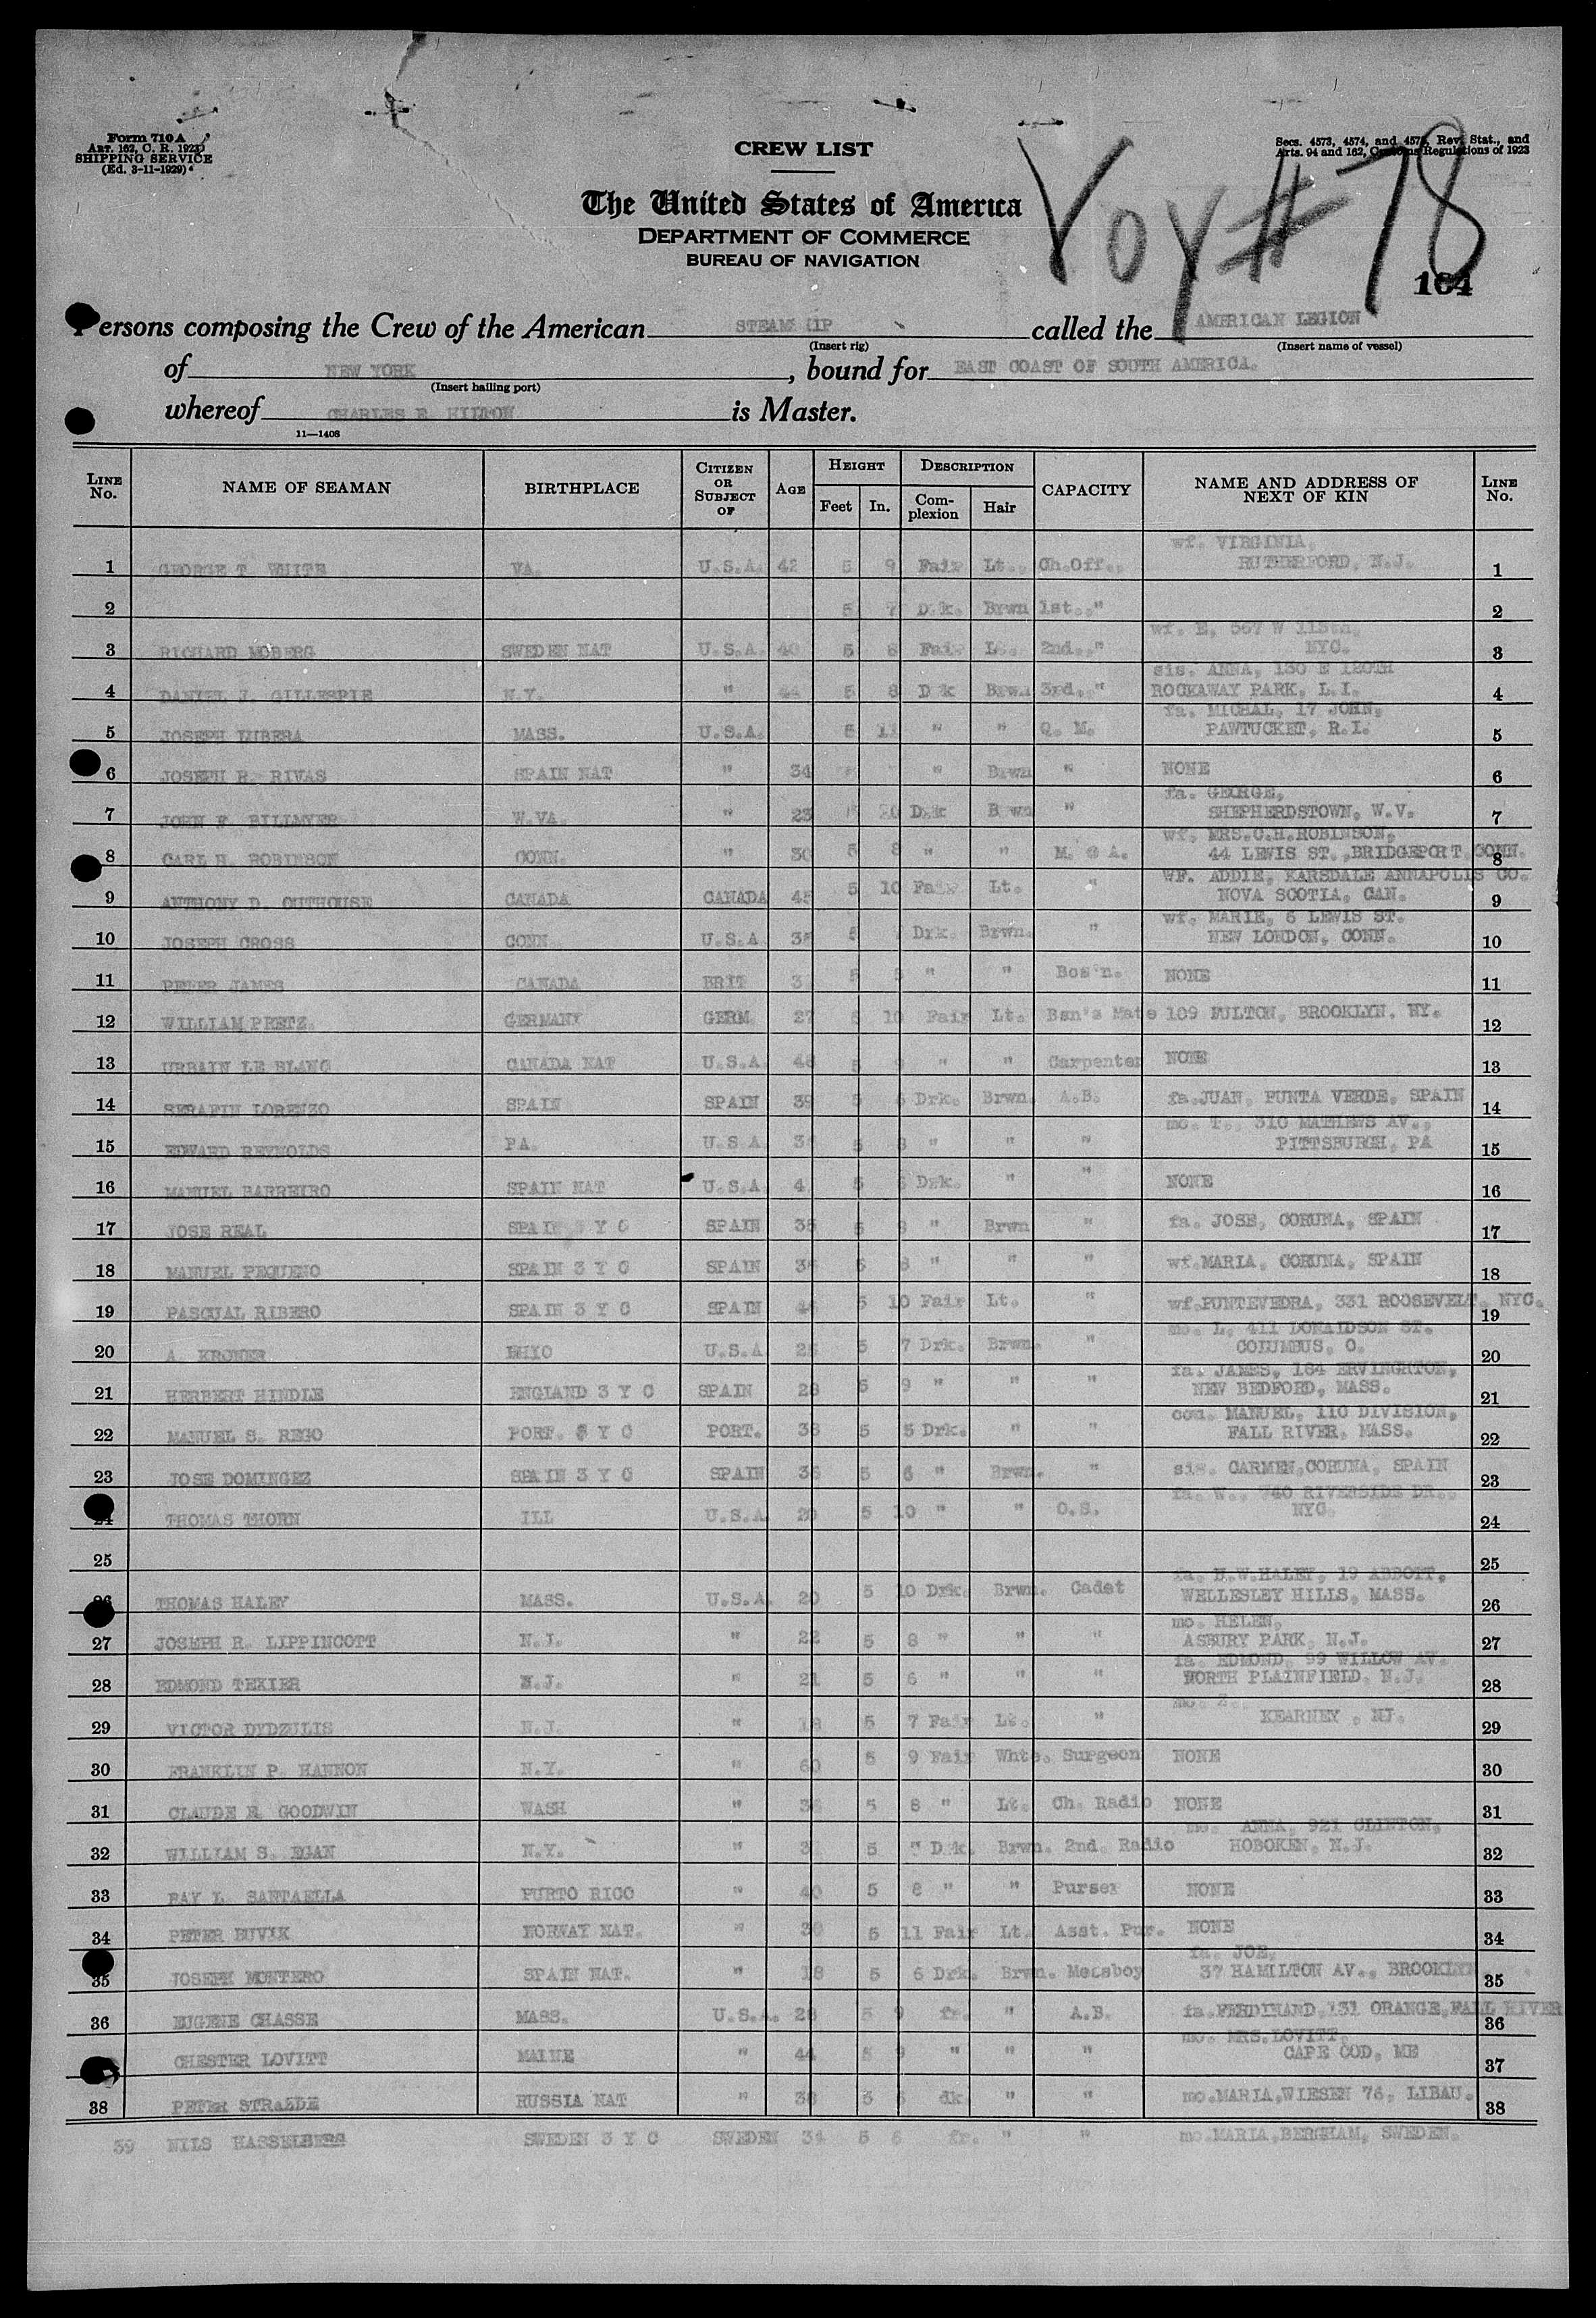 Form 710 A
Art. 162, C. R. 1923
SHIPPING SERVICE
(Ed. 3-11-1929)
CREW LIST
Secs. 4573, 4574, and 4575, Rev. Stat., and
Arts. 94 and 162, Customs Regulations of 1923
The United States of America
DEPARTMENT OF COMMERCE
BUREAU OF NAVIGATION
Voy # 78
164
Persons composing the Crew of the American STEAMSHIP called the AMERICAN LEGION
(Insert rig) (Insert name of vessel)
of NEW YORK, bound for EAST COAST OF SOUTH AMERICA.
(Insert hailing port)
whereof CHARLES E. HILTON is Master.
11—1408
LINE No. NAME OF SEAMAN BIRTHPLACE CITIZEN OR SUBJECT OF AGE HEIGHT Feet In. DESCRIPTION Complexion Hair CAPACITY NAME AND ADDRESS OF NEXT OF KIN LINE No.
wf. VIRGINIA,
1 GEORGE T. WHITE VA. U.S.A. 42 5 9 Fair Lt. Ch.Off. RUTHERFORD, N.J. 1
2 5 7 Drk. Brwn 1st. " 2
wf. E, 567 W 113th,
3 RICHARD MOBERG SWEDEN NAT U.S.A. 40 5 8 Fair Lt. 2nd. " NYC. 3
sis. ANNA, 130 E 120TH
4 DANIEL J. GILLESPIE N.Y. " 44 5 8 Drk Brwn 3rd. " ROCKAWAY PARK, L.I. 4
fa. MICHAL, 17 JOHN,
5 JOSEPH LUBERA MASS. U.S.A. 5 11 " " Q. M. PAWTUCKET, R.I. 5
6 JOSEPH R. RIVAS SPAIN NAT " 34 " Brwn " NONE 6
fa. GEORGE,
7 JOHN F BILLMYER W.VA. " 23 10 Drk Brwn " SHEPHERDSTOWN, W.V. 7
wf. MRS.C.H.ROBINSON,
8 CARL H. ROBINSON CONN. " 30 5 8 " " M. @ A. 44 LEWIS ST.,BRIDGEPORT CONN. 8
WF. ADDIE, KARSDALE ANNAPOLIS CO.
9 ANTHONY D. OUTHOUSE CANADA CANADA 45 5 10 Fair Lt. " NOVA SCOTIA, CAN. 9
wf. MARIE, 6 LEWIS ST.
10 JOSEPH CROSS CONN U.S.A 5 Drk. Brwn. " NEW LONDON, CONN. 10
11 PETER JAMES CANADA BRIT 5 " " Bos'n. NONE 11
12 WILLIAM PRETZ GERMANY GERM. 27 5 10 Fair Lt. Bsn's Mate 109 FULTON, BROOKLYN, NY. 12
13 URBAIN LE BLANC CANADA NAT U.S.A 5 " " Carpenter NONE 13
14 SERAFIN LORENZO SPAIN SPAIN 39 5 6 Drk. Brwn. A.B. fa.JUAN, PUNTA VERDE, SPAIN 14
mo. T., 310 MATHEWS AV.,
15 EDWARD REYNOLDS PA. U.S.A 5 8 " " " PITTSBURGH, PA 15
16 MANUEL BARREIRO SPAIN NAT U.S.A 5 Drk. " " NONE 16
17 JOSE REAL SPAIN 3 Y C SPAIN 35 5 " Brwn " fa. JOSE, CORUNA, SPAIN 17
18 MANUEL PEQUENO SPAIN 3 Y C SPAIN 5 8 " " " wf.MARIA, CORUNA, SPAIN 18
19 PASCUAL RIBERO SPAIN 3 Y C SPAIN 5 10 Fair Lt. " wf.PUNTEVEDRA, 331 ROOSEVELT, NYC. 19
mo. L, 411 DONAIDSON ST.
20 A. KRONER OHIO U.S.A 5 7 Drk. Brwn. " COLUMBUS, O. 20
fa. JAMES, 184 ERVINGHTON,
21 HERBERT HINDLE ENGLAND 3 Y C SPAIN 28 5 9 " " " NEW BEDFORD, MASS. 21
cou. MANUEL, 110 DIVISION,
22 MANUEL S. REGO PORT. 3 Y C PORT. 38 5 5 Drk. " " FALL RIVER, MASS. 22
23 JOSE DOMINGEZ SPAIN 3 Y C SPAIN 35 5 6 " Brwn. " sis. CARMEN,CORUNA, SPAIN 23
fa. W., 740 RIVERSIDE DR.,
24 THOMAS THORN ILL U.S.A. 20 5 10 " " O.S. NYC. 24
25 25
fa. N.W.HALEY, 19 ABBOTT,
26 THOMAS HALEY MASS. U.S.A. 20 5 10 Drk. Brwn. Cadet WELLESLEY HILLS, MASS. 26
mo. HELEN,
27 JOSEPH R. LIPPINCOTT N.J. " 22 5 8 " " " ASBURY PARK, N.J. 27
fa. EDMOND, 99 WILLOW AV.
28 EDMOND TEXIER N.J. " 21 5 6 " " " NORTH PLAINFIELD, N.J. 28
mo. Z.
29 VICTOR DYDZULIS N.J. " 18 5 7 Fair Lt. " KEARNEY , NJ. 29
30 FRANKLIN P. HANNON N.Y. " 60 5 9 Fair Whte. Surgeon NONE 30
31 CLAUDE E GOODWIN WASH " 5 8 " Lt. Ch. Radio NONE 31
mo. ANNA, 921 CLINTON,
32 WILLIAM S. EGAN N.Y. " 5 " Drk. Brwn. 2nd. Radio HOBOKEN, N.J. 32
33 RAY L. SARTAELLA PURTO RICO " 40 5 8 " " Purser NONE 33
34 PETER BUVIK NORWAY NAT. " 30 5 11 Fair Lt. Asst. Pur. NONE 34
fa. JOE,
35 JOSEPH MONTERO SPAIN NAT. " 18 5 6 Drk. Brwn. Messboy 37 HAMILTON AV., BROOKLYN 35
36 EUGENE CHASSE MASS. U.S.A. 28 5 9 fr. " A.B. fa.FERDINAND,131 ORANGE,FALL RIVER 36
mo. MRS.LOVITT,
CHESTER LOVITT MAINE " 44 5 9 " " " CAPE COD, ME 37
38 PETER STRALDE RUSSIA NAT " 38 5 dk. " " mo.MARIA,WIESEN 76, LIBAU. 38
39 NILS HASSELBERG SWEDEN 3 Y C SWEDEN 34 5 6 fr. " " mo.MARIA,BERGHAM, SWEDEN.